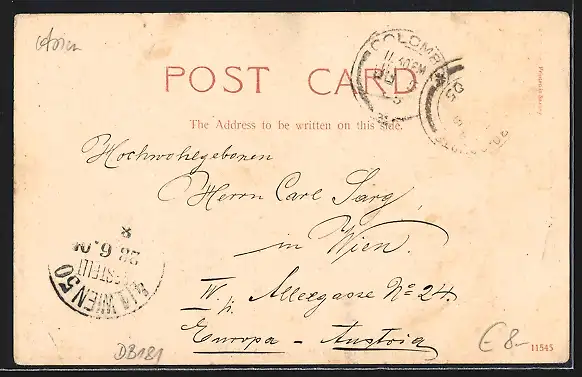 Asien
POST CARD
The Address to be written on this side.
COLOMBO
Hochwohlgeboren
Herrn Carl Sarg
in Wien.
IV. Alleegasse No 24.
Europa - Austria
WIEN 50
BESTELLT
28.6.
DB181
€ 8.-
11545